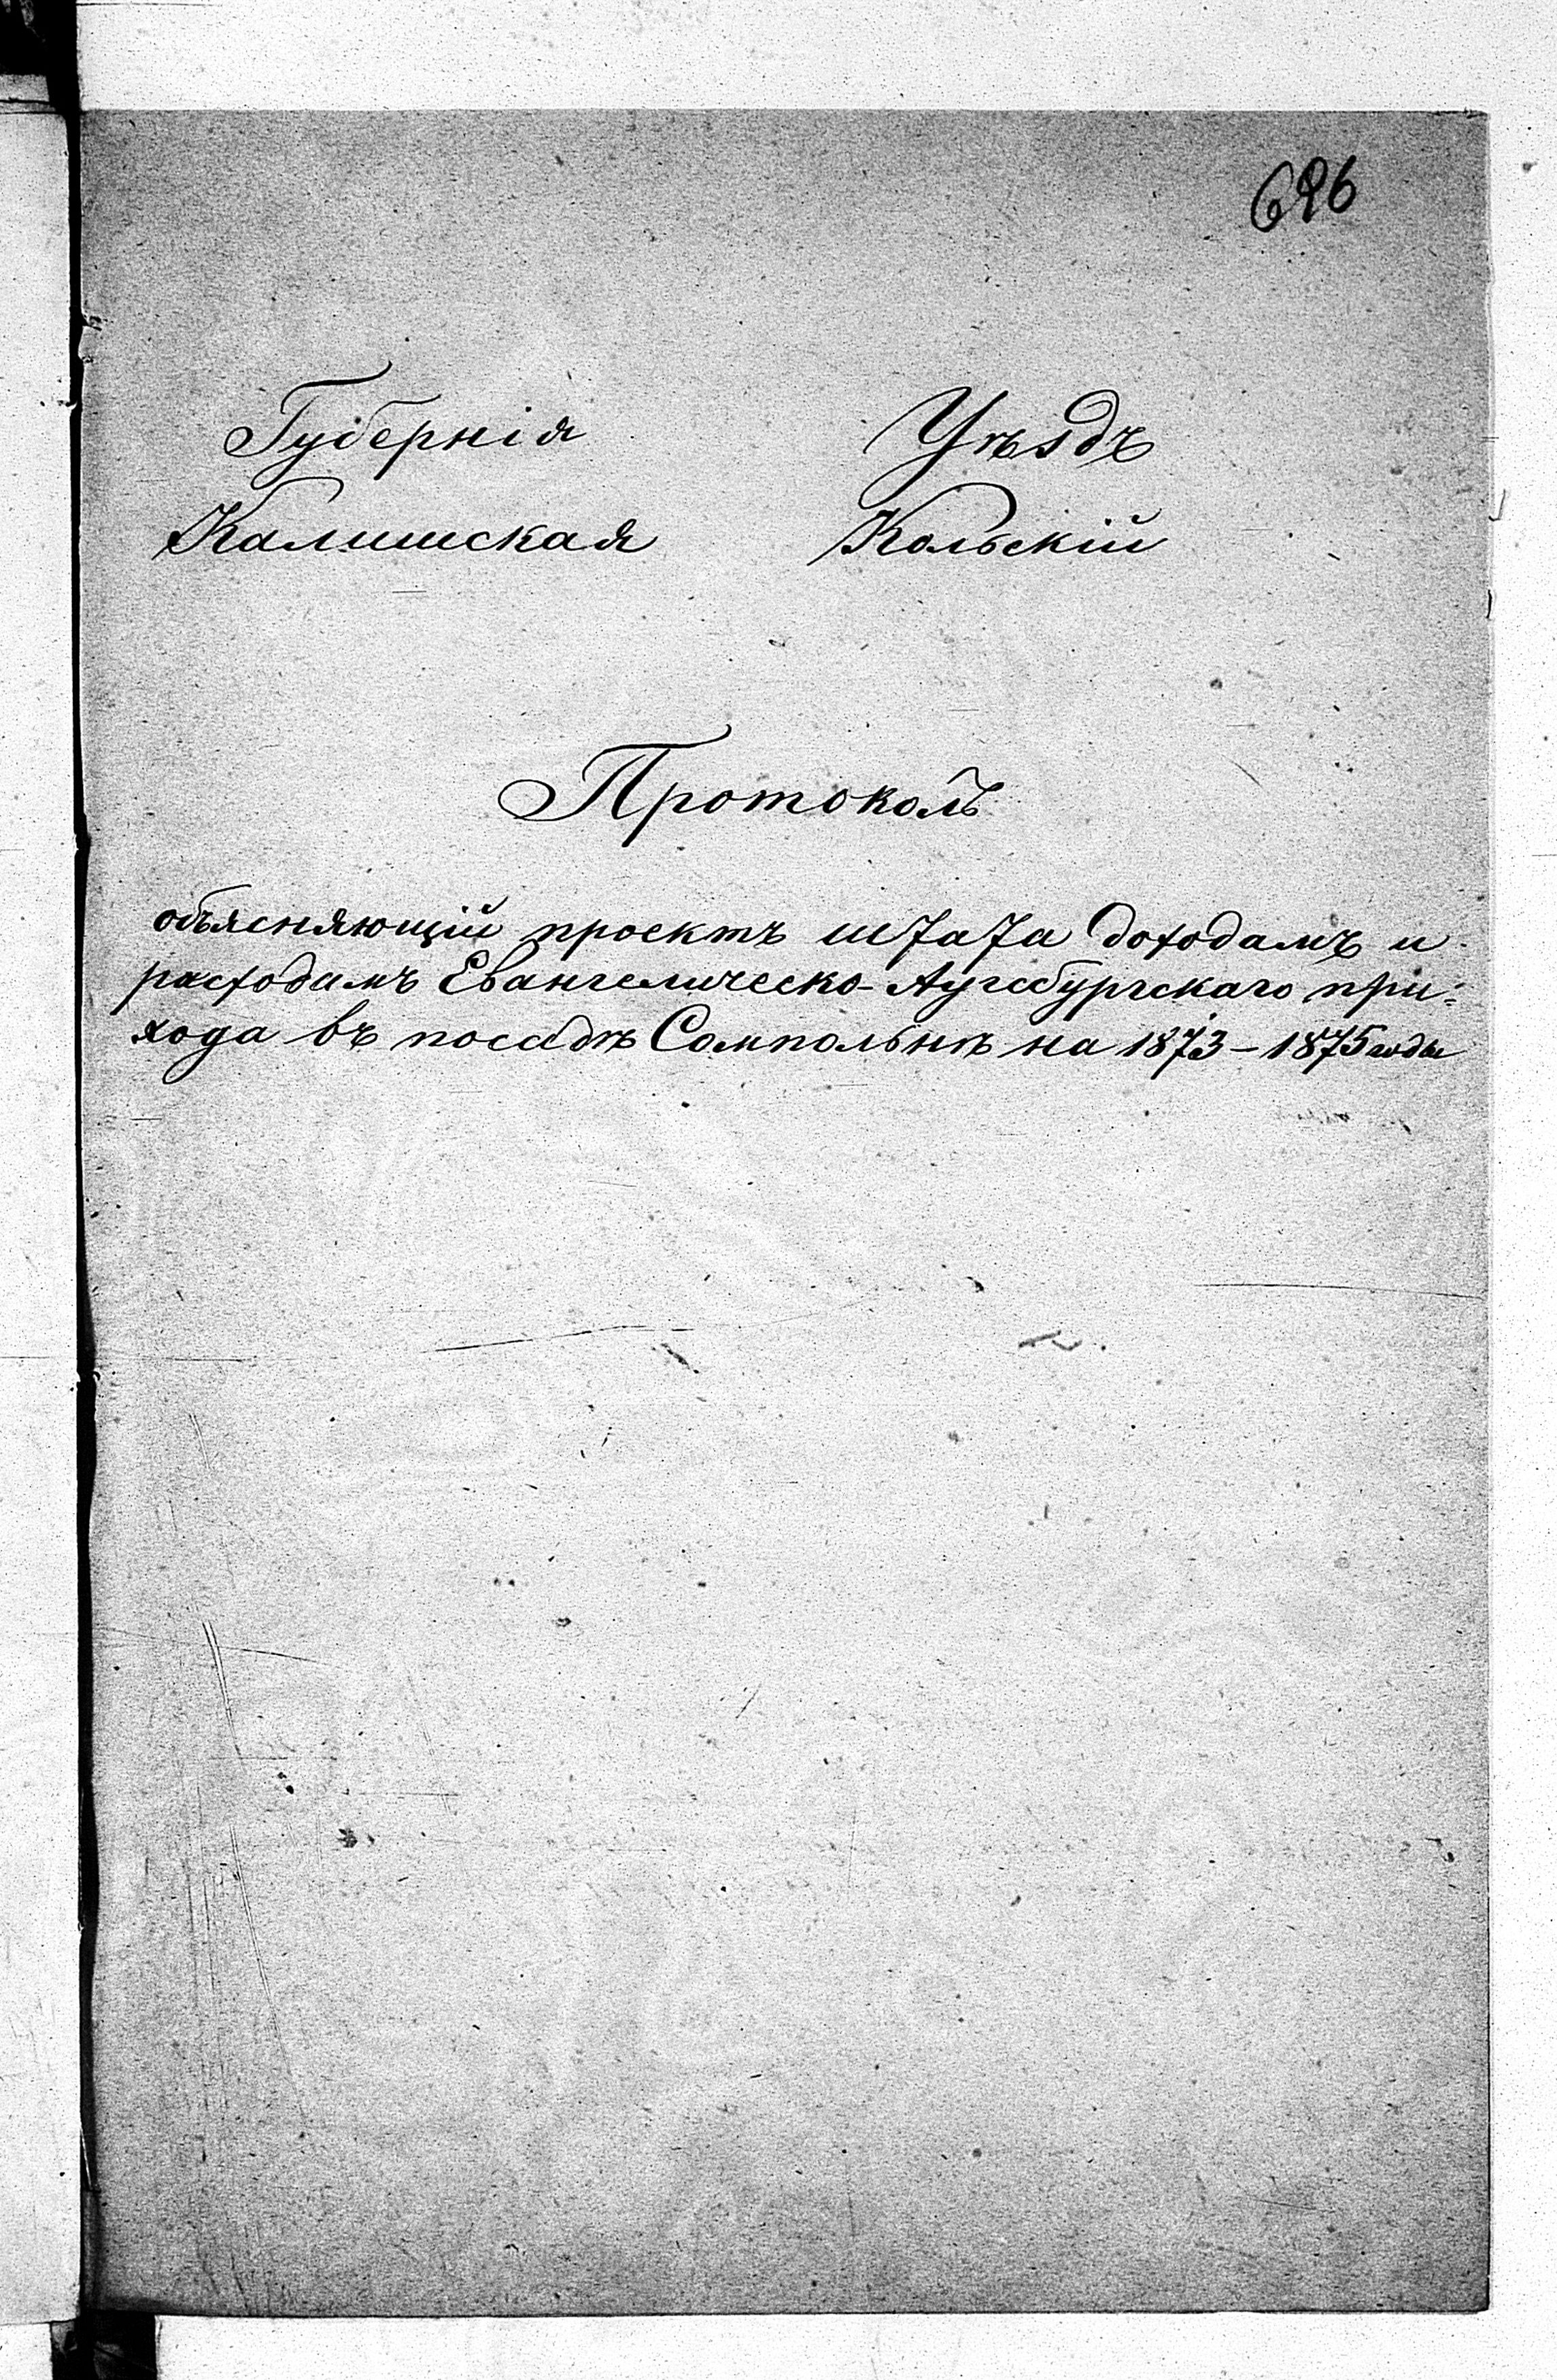 626
Губернія Уѣздъ
Калишская Кольскій
Протоколъ
объясняющій проектъ штата доходамъ и
расходамъ Евангелическо-Аугсбургскаго при-
хода въ посадѣ Сомпольнѣ на 1873–1875 годы